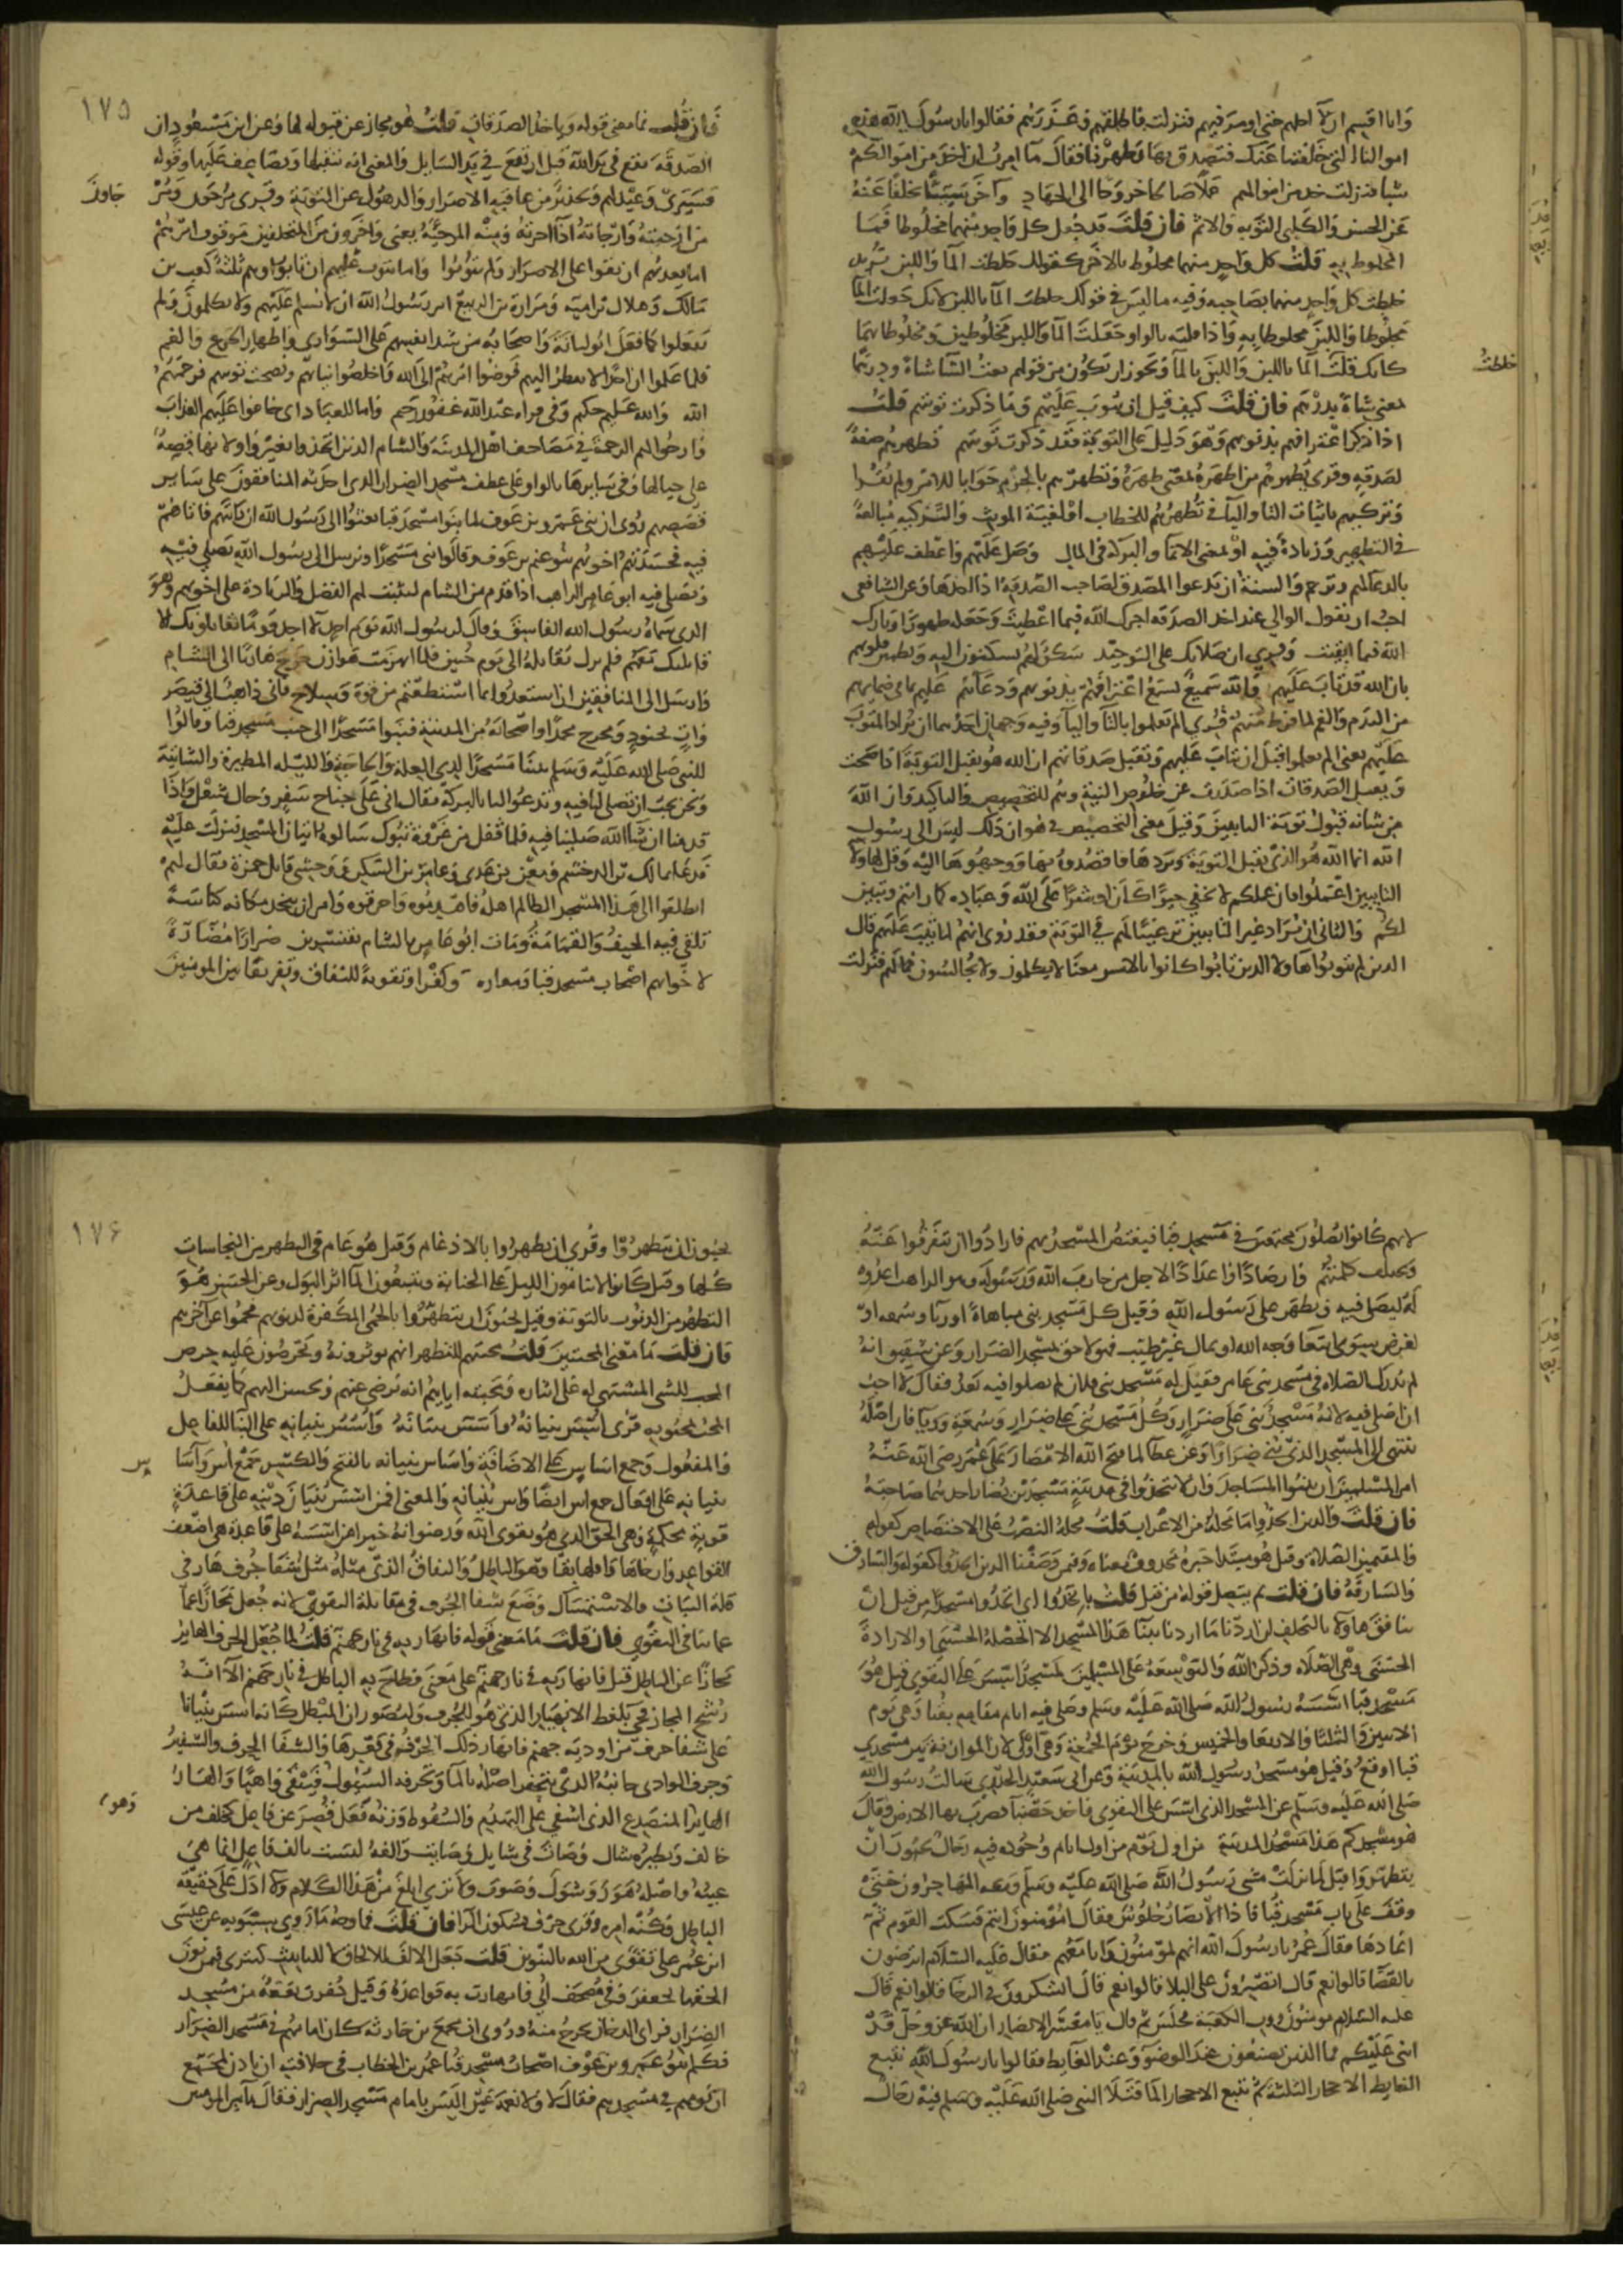 وانا اقسم ان لا احلهم حتى اومر فيهم فنزلت فاطلقهم وعذرهم فقالوا يا رسول الله هذه
اموالنا التي خلفتنا عنك فتصدق بها وطهرنا فقال ما امرت ان اخذ من اموالكم
شيا فنزلت خذ من اموالهم عملا صالحا خروجا الى الجهاد واخر سيئا تخلفا عنه
عن الحسن والكلبي التوبه والاثم فان قلت قد جعل كل واحد منهما مخلوطا فما
المخلوط به قلت كل واحد منهما مخلوط بالاخر كقولك خلطت الما واللبن تريد
خلطت كل واحد منهما بصاحبه وفيه ما ليس في قولك خلطت الما باللبن لانك جعلت الما
مخلوطا واللبن مخلوطا به واذا قلته بالواو جعلت الما واللبن مخلوطين ومخلوطا بهما
كانك قلت الما باللبن واللبن بالما ويجوز ان يكون من قولهم بعت الشا شاة ودرهما
خلطت
بمعنى شاة بدرهم فان قلت كيف قيل ان يتوب عليهم وما ذكرت توبتهم قلت
اذا ذكر اعترافهم بذنوبهم وهو دليل على التوبة فقد ذكرت توبتهم تطهرهم صفة
لصدقة وقرى تطهرهم من اطهره بمعنى طهره وتطهرهم بالجزم جوابا للامر ولم يقرا
وتزكيهم باثبات اليا والتا في تطهرهم للخطاب او لغيبة المونث والتزكيه مبالغة
في التطهير وزيادة فيه او بمعنى الانما والبركة في المال وصل عليهم واعطف عليهم
بالدعا لهم وترحم والسنة ان يدعوا المصدق لصاحب الصدقة اذا اخذها وعن الشافعي
احب ان يقول الوالي عند اخذ الصدقه اجرك الله فيما اعطيت وجعله طهورا وبارك
الله فيما ابقيت وقرى ان صلاتك على التوحيد سكن لهم يسكنون اليه وتطمئن قلوبهم
بان الله قد تاب عليهم والله سميع يسمع اعترافهم بذنوبهم ودعاهم عليم بما في ضمايرهم
من الندم والغم لما فرط منهم قرى الم تعلموا بالتا واليا وفيه وجهان احدهما ان يراد المتوب
عليهم يعنى الم يعلموا قبل ان يتاب عليهم وتقبل صدقاتهم ان الله هو يقبل التوبة اذا صحت
ويقبل الصدقات اذا صدرت عن خلوص النية وهو للتخصيص والتاكيد وان الله
من شانه قبول توبة التايبين وقيل معنى التخصيص في هو ان ذلك ليس الى رسول
الله انما الله هو الذي يقبل التوبة ويردها فاقصدوه بها ووجهوها اليه وقل لهاولا
التايبين اعملوا فان عملكم لا يخفي خيرا كان او شرا على الله وعباده كما رايتم وتبين
لكم والثاني ان يراد غير التايبين ترغيبا لهم في التوبة فقد روى انهم لما تيب عليهم قال
الذين لم يتوبوا هاولا الذين تابوا كانوا بالامس معنا لا يكلمون ولا يجالسون فما لهم فنزلت
١٧٥
فان قلت فما معنى قوله وياخذ الصدقات قلت هو مجاز عن قبوله لها وعن ابن مسعود ان
الصدقة تقع في يد الله قبل ان تقع في يد السايل والمعنى انه يتقبلها ويضاعف عليها وقوله
فسيرى وعيد لهم وتحذير من عاقبة الاصرار والذهول عن التوبة وقرى مرجون ومر
جاون
من ارجيته وارجاته اذا اخرته ومنه المرجئة يعنى واخرون من المتخلفين موقوف امرهم
اما يعذبهم ان بقوا على الاصرار ولم يتوبوا واما يتوب عليهم ان تابوا وهم ثلثة كعب بن
مالك وهلال بن امية ومرارة بن الربيع امر رسول الله ان لا يسلم عليهم ولا يكلموا ولم
يفعلوا كما فعل ابو لبابة واصحابه من شد انفسهم على السواري واظهار الجزع والغم
فلما علموا ان احدا لا ينظر اليهم فوضوا امرهم الى الله واخلصوا نياتهم ونصحت توبتهم فرحمهم
الله والله عليم حكيم وفي قراءه عبد الله غفور رحيم واما للعباد اى خافوا عليهم العذاب
وارجوا لهم الرحمة في مصاحف اهل المدينة والشام الذين اتخذوا بغير واو لانها قصة
على حيالها وفي سايرها بالواو على عطف مسجد الضرار الذى احدثه المنافقون على ساير
قصصهم روى ان بني عمرو بن عوف لما بنوا مسجد قبا بعثوا الى رسول الله ان ياتيهم فاتاهم
فيه فحسدتهم اخوتهم بنو غنم بن عوف وقالوا نبني مسجدا ونرسل الى رسول الله يصلي فيه
ويصلي فيه ابو عامر الراهب اذا قدم من الشام ليثبت لهم الفضل والزيادة على اخوتهم وهو
الذى سماه رسول الله الفاسق وقال لرسول الله يوم احد لا اجد قوما يقاتلونك الا
قاتلتك معهم فلم يزل يقاتله الى يوم حنين فلما انهزمت هوازن خرج هاربا الى الشام
وارسل الى المنافقين ان استعدوا بما استطعتم من قوة وسلاح فاني ذاهب الى قيصر
وات بجنود ومخرج محمدا واصحابه من المدينة فبنوا مسجدا الى جنب مسجد قبا وقالوا
للنبي صلى الله عليه وسلم بنينا مسجدا لذى العلة والحاجة والليله المطيرة والشاتية
ونحن نحب ان تصلي لنا فيه وتدعو لنا بالبركة فقال انى على جناح سفر وحال شغل واذا
قدمنا ان شا الله صلينا فيه فلما قفل من غزوة تبوك سالوه اتيان المسجد فنزلت عليه
فدعا بمالك بن الدخشم ومعن بن عدى وعامر بن السكن ووحشي قاتل حمزة فقال لهم
انطلقوا الى هذا المسجد الظالم اهله فاهدموه واحرقوه وامر ان يتخذ مكانه كناسة
تلقى فيه الجيف والقمامة ومات ابو عامر بالشام بقنسرين ضرارا مضارة
لاخوانهم اصحاب مسجد قبا ومعازه وكفرا وتقوية للنفاق وتفريقا بين المومنين
لانهم كانوا يصلون مجتمعين في مسجد قبا فيغتص المسجد بهم فارادوا ان يتفرقوا عنه
وتختلف كلمتهم وارصادا واعدادا لاجل من حارب الله ورسوله وهو الراهب اعدوه
له ليصلي فيه ويظهر على رسول الله وقيل كل مسجد بنى مباهاة او ريا وسمعه او
لغرض سوى ابتغا وجه الله او بمال غير طيب فهو لاحق بمسجد الضرار وعن شقيق انه
لم يدرك الصلاه في مسجد بني عامر فقيل له مسجد بني فلان لم يصلوا فيه بعد فقال لا احب
ان اصلي فيه لانه مسجد بنى على ضرار وكل مسجد بني على ضرار وسمعة وريا فان اصله
ينتهى الى المسجد الذى بني ضرارا وعن عطا لما فتح الله الامصار على عمر رضى الله عنه
امر المسلمين ان يبنوا المساجد وان لا يتخذوا في مدينة مسجدين يضار احدهما صاحبه
فان قلت والذين اتخذوا ما محله من الاعراب قلت محله النصب على الاختصاص كقوله
والمقيمين الصلاة وقيل هو مبتدا خبره محذوف معناه وفيمن وصفنا الذين اتخذوا كقوله والسارق
والسارقة فان قلت بم يتصل قوله من قبل قلت باتخذوا اى اتخذوا مسجدا من قبل ان
ينافق هاولا بالتخلف ان اردنا ما اردنا ببنا هذا المسجد الا الخصلة الحسنى او الارادة
الحسنى وهى الصلاه وذكر الله والتوسعة على المسلمين لمسجد اسس على التقوى قيل هو
مسجد قبا اسسه رسول الله صلى الله عليه وسلم وصلى فيه ايام مقامه بقبا وهى يوم
الاثنين والثلثا والاربعا والخميس وخرج يوم الجمعة وهى اولى لان الموازنة بين مسجدي
قبا اوقع وقيل هو مسجد رسول الله بالمدينة وعن ابى سعيد الخدرى سالت رسول الله
صلى الله عليه وسلم عن المسجد الذى اسس على التقوى فاخذ حصبا فضرب بها الارض وقال
هو مسجدكم هذا مسجد المدينة من اول يوم من اول ايام وجوده فيه رجال يحبون ان
يتطهروا قيل لما نزلت مشى رسول الله صلى الله عليه وسلم ومعه المهاجرون حتى
وقف على باب مسجد قبا فاذا الانصار جلوس فقال امومنون انتم فسكت القوم ثم
اعادها فقال عمر يا رسول الله انهم لمومنون وانا معهم فقال عليه السلام اترضون
بالقضا قالوا نعم قال اتصبرون على البلا قالوا نعم قال اتشكرون في الرخا قالوا نعم قال
عليه السلام مومنون ورب الكعبة فجلس ثم قال يا معشر الانصار ان الله عز وجل قد
اثنى عليكم فما الذى تصنعون عند الوضو وعند الغايط فقالوا يا رسول الله نتبع
الغايط الاحجار الثلثة ثم نتبع الاحجار الما فتلا النبي صلى الله عليه وسلم فيه رجال
١٧۶
يحبون ان يتطهروا وقرى ان يطهروا بالادغام وقيل هو عام في التطهر من النجاسات
كلها وقيل كانوا لا ينامون الليل على الجنابة ويتبعون الما اثر البول وعن الحسن هو
التطهر من الذنوب بالتوبة وقيل يحبون ان يتطهروا بالحمى المكفرة لذنوبهم فحموا عن اخرهم
فان قلت ما معنى المحبتين قلت محبتهم للتطهر انهم يوثرونه ويحرصون عليه حرص
المحب للشى المشتهى له على ايثاره ومحبته اياهم انه يرضى عنهم ويحسن اليهم كما يفعل
المحب بمحبوبه قرى اسس بنيانه واسس بنيانه واسس بنيانه على البنا للفاعل
والمفعول وجمع اساس على الاضافة واساس بنيانه بالفتح والكسر جمع اس واسا
س
بنيانه على افعال جمع اس ايضا واس بنيانه والمعنى افمن اسس بنيان دينه على قاعدة
قوية محكمة وهى الحق الذى هو تقوى الله ورضوانه خير امن اسسه على قاعدة هى اضعف
القواعد وارخاها واقلها بقا وهو الباطل والنفاق الذى مثله مثل شفا جرف هار في
قلة الثبات والاستمساك وضع شفا الجرف في مقابلة التقوى لانه جعل مجازا عما
عما ينافي التقوى فان قلت فما معنى قوله فانهار به في نار جهنم قلت لما جعل الجرف الهاير
مجازا عن الباطل قيل فانهار به في نار جهنم على معنى فطاح به الباطل في نار جهنم الا انه
رشح المجاز فجي بلفظ الانهيار الذى هو للجرف وليتصور ان المبطل كانه اسس بنيانا
على شفا جرف من اودية جهنم فانهار به ذلك الجرف في قعرها والشفا الجرف والشفير
وجرف الوادى جانبه الذى يتحفر اصله بالما وتجرفه السيول فيبقى واهيا والهار
الهاير المنصدع الذى اشفى على التهدم والسقوط وزنه فعل قصر عن فاعل كخلف من
وهو
خالف ونظيره شاك وصات في شايك وصايت والفه ليست بالف فاعل انما هى
عينه واصله هور وشوك وصوت ولا ترى ابلغ من هذا الكلام ولا ادل على حقيقة
الباطل وكنه امره وقرى جرف بسكون الرا فان قلت فما وجه ما روى سيبويه عن عيسى
ابن عمر على تقوى من الله بالتنوين قلت جعل الالف للالحاق لا للتانيث كتترى فيمن نون
الحقها بجعفر وفي مصحف ابي فانهارت به قواعده وقيل حفرت بقعة من مسجد
الضرار فراى الدخان يخرج منه وروى ان مجمع بن حارثه كان امامهم في مسجد الضرار
فكلم بنو عمرو بن عوف اصحاب مسجد قبا عمر بن الخطاب في خلافته ان ياذن لمجمع
ان يومهم في مسجدهم فقال لا ولا نعمة عين اليس بامام مسجد الضرار فقال يا امير المومنين